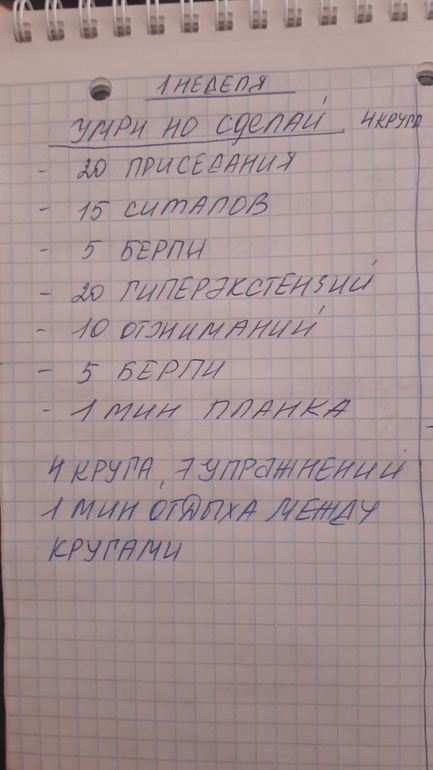 1 НЕДЕЛЯ
УМРИ НО СДЕЛАЙ 4 КРУГА
- 20 ПРИСЕДАНИЯ
- 15 СИТАПОВ
- 5 БЕРПИ
- 20 ГИПЕРЭКСТЕНЗИЙ
- 10 ОТЖИМАНИЙ
- 5 БЕРПИ
- 1 МИН ПЛАНКА
4 КРУГА, 7 УПРАЖНЕНИЙ
1 МИН ОТДЫХА МЕЖДУ
КРУГАМИ